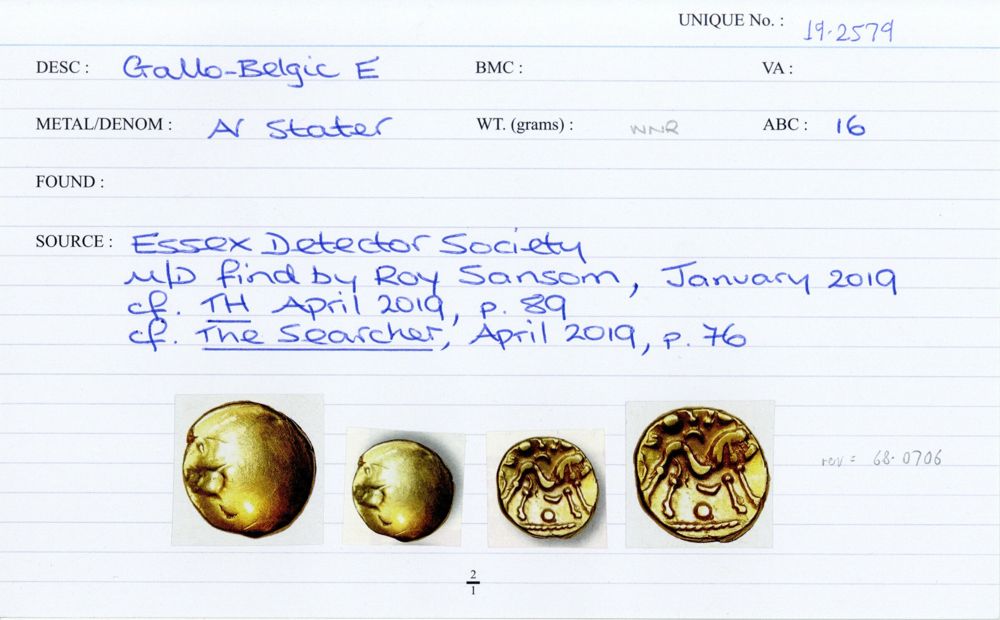 UNIQUE No. : 19.2579
DESC : Gallo-Belgic E BMC : VA :
METAL/DENOM : AV Stater WT. (grams) : WNR ABC : 16
FOUND :
SOURCE : Essex Detector Society
M/D find by Roy Sansom, January 2019
cf. TH April 2019, p. 89
cf. The Searcher, April 2019, p. 76
rev = 68.0706
2
1